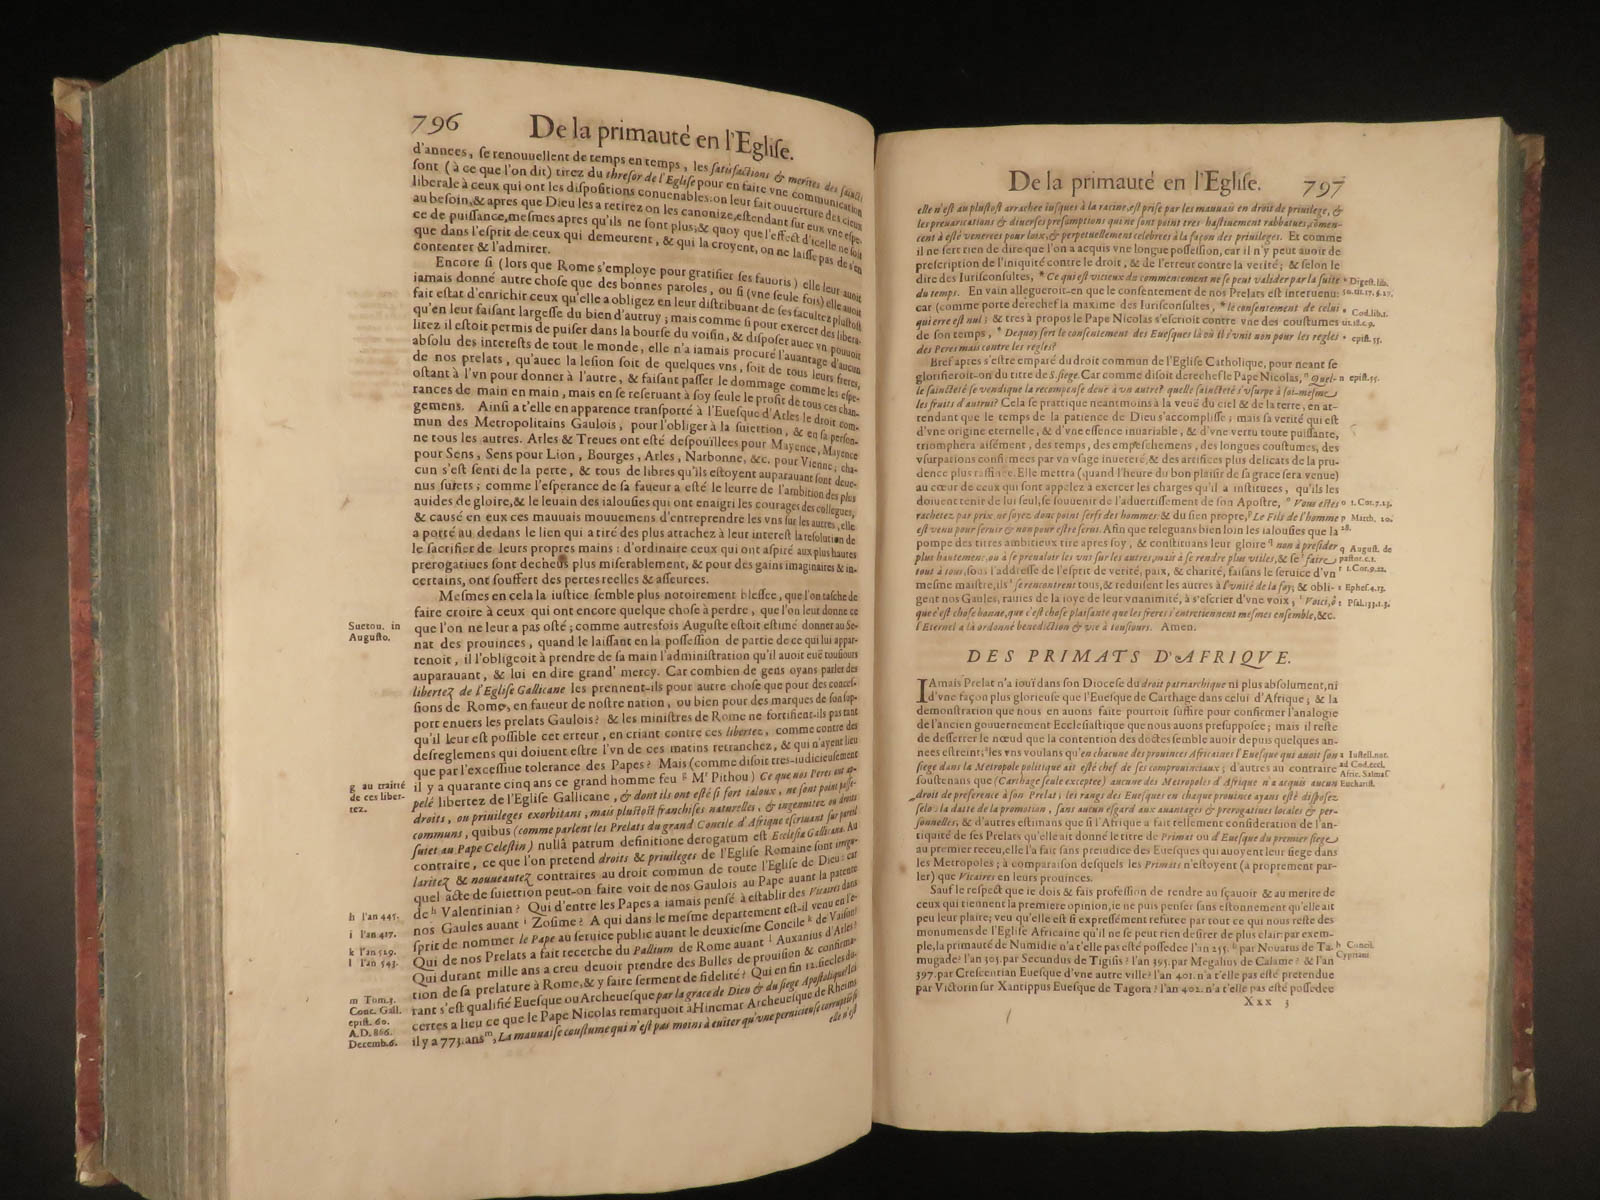 796 De la primauté en l'Egliſe.
d'annees, ſe renouuellent de temps en temps, les ſatisfactions & merites des ſaincts
ſont (à ce que l'on dit) tirez du threſor de l'Egliſe pour en faire vne communication
liberale à ceux qui ont les diſpoſitions conuenables: on leur fait ouuerture des cieux
au beſoin, & apres que Dieu les a retirez on les canonize, eſtendant ſur eux vne eſpe-
ce de puiſſance, meſmes apres qu'ils ne ſont plus; & quoy que l'effect d'icelle ne ſoit
que dans l'eſprit de ceux qui demeurent, & qui la croyent, on ne laiſſe pas de s'en
contenter & l'admirer.
Encore ſi (lors que Rome s'employe pour gratifier ſes fauoris) elle leur auoit
iamais donné autre choſe que des bonnes paroles, ou ſi (vne ſeule fois) elle auoit
fait eſtat d'enrichir ceux qu'elle a obligez en leur diſtribuant de ſes facultez pluſtoſt
qu'en leur faiſant largeſſe du bien d'autruy; mais comme ſi pour exercer des libera-
litez il eſtoit permis de puiſer dans la bourſe du voiſin, & diſpoſer auec vn pouuoir
abſolu des intereſts de tout le monde, elle n'a iamais procuré l'auantage d'aucun
de nos prelats, qu'auec la leſion ſoit de quelques vns, ſoit de tous leurs freres,
oſtant à l'vn pour donner à l'autre, & faiſant paſſer le dommage comme les eſpe-
rances de main en main, mais en ſe reſeruant à ſoy ſeule le profit de tous ces chan-
gemens. Ainſi a t'elle en apparence tranſporté à l'Eueſque d'Arles le droit com-
mun des Metropolitains Gaulois, pour l'obliger à la ſuiettion, & en ſa perſon-
ne tous les autres. Arles & Treues ont eſté deſpouïllees pour Mayence, Mayence
pour Sens, Sens pour Lion, Bourges, Arles, Narbonne, &c. pour Vienne; cha-
cun s'eſt ſenti de la perte, & tous de libres qu'ils eſtoyent auparauant ſont deue-
nus ſuiets; comme l'eſperance de ſa faueur a eſté le leurre de l'ambition des plus
auides de gloire, & le leuain des ialouſies qui ont enaigri les courages des collegues,
& cauſé en eux ces mauuais mouuemens d'entreprendre les vns ſur les autres, elle
a porté au dedans le lien qui a tiré des plus attachez à leur intereſt la reſolution de
le ſacrifier de leurs propres mains: d'ordinaire ceux qui ont aſpiré aux plus hautes
prerogatiues ſont decheus plus miſerablement, & pour des gains imaginaires & in-
certains, ont ſouffert des pertes reelles & aſſeurees.
Meſmes en cela la iuſtice ſemble plus notoirement bleſſee, que l'on taſche de
faire croire à ceux qui ont encore quelque choſe à perdre, que l'on leur donne ce
Suetou. in
Auguſto.
que l'on ne leur a pas oſté; comme autresfois Auguſte eſtoit eſtimé donner au Se-
nat des prouinces, quand le laiſſant en la poſſeſſion de partie de ce qui lui appar-
tenoit, il l'obligeoit à prendre de ſa main l'adminiſtration qu'il auoit euë touſiours
auparauant, & lui en dire grand' mercy. Car combien de gens oyans parler des
libertez de l'Egliſe Gallicane les prennent-ils pour autre choſe que pour des conceſ-
ſions de Rome, en faueur de noſtre nation, ou bien pour des marques de ſon ſup-
port enuers les prelats Gaulois? & les miniſtres de Rome ne fortifient-ils pas tant
qu'il leur eſt poſſible cet erreur, en criant contre ces libertez, comme contre des
deſreglemens qui doiuent eſtre l'vn de ces matins retranchez, & qui n'ayent lieu
que par l'exceſſiue tolerance des Papes? Mais (comme diſoit tres-iudicieuſement
g au traitté
de ces liber-
tez.
il y a quarante cinq ans ce grand homme feu g Mr Pithou) Ce que nos Peres ont ap-
pelé libertez de l'Egliſe Gallicane, & dont ils ont eſté ſi fort ialoux, ne ſont point paſſe-
droits, ou priuileges exorbitans, mais pluſtoſt franchiſes naturelles, & ingenuitez ou droits
communs, quibus (comme parlent les Prelats du grand Concile d'Afrique eſcriuant ſur pareil
ſuiet au Pape Celeſtin) nullâ patrum definitione derogatum eſt Eccleſiæ Gallicanæ. Au
contraire, ce que l'on pretend droits & priuileges de l'Egliſe Romaine ſont irregu-
laritez & nouueautez contraires au droit commun de toute l'Egliſe de Dieu: car
quel acte de ſuiettion peut-on faire voir de nos Gaulois au Pape auant la patente
h l'an 445.
de h Valentinian? Qui d'entre les Papes a iamais penſé à eſtablir des Vicaires dans
i l'an 417.
nos Gaules auant i Zoſime? A qui dans le meſme departement eſt-il venu en l'e-
k l'an 529.
ſprit de nommer le Pape au ſeruice public auant le deuxieſme Concile k de Vaiſon?
l l'an 543.
Qui de nos Prelats a fait recerche du Pallium de Rome auant l Auxanius d'Arles?
Qui durant mille ans a creu deuoir prendre des Bulles de prouiſion & confirma-
tion de ſa prelature à Rome, & y faire ſerment de fidelité? Qui en fin 12. ſiecles du-
m Tom. 3.
Conc. Gall.
epiſt. 60.
A.D. 866.
Decemb. 6.
rant s'eſt qualifié Eueſque ou Archeueſque par la grace de Dieu & du ſiege Apoſtolique? Ici
certes a lieu ce que le Pape Nicolas remarquoit à Hincmar Archeueſque de Rheims
il y a 773. ans m, La mauuaiſe couſtume qui n'eſt pas moins à euiter qu'vne pernicieuſe corruption ſi
elle n'eſt
De la primauté en l'Egliſe. 797
elle n'eſt au pluſtoſt arrachee iuſques à la racine, eſt priſe par les mauuais en droit de priuilege, &
les preuarications & diuerſes preſomptions qui ne ſont point tres haſtiuement rabbatues, cõmen-
cent à eſtre venerees pour loix, & perpetuellement celebrees à la façon des priuileges. Et comme
il ne ſert rien de dire que l'on a acquis vne longue poſſeſſion, car il n'y peut auoir de
preſcription de l'iniquité contre le droit, & de l'erreur contre la verité; & ſelon le
dire des Iuriſconſultes, * Ce qui eſt vicieux du commencement ne ſe peut valider par la ſuite
* Digeſt. lib.
50. tit. 17. §. 29.
du temps. En vain allegueroit-on que le conſentement de nos Prelats eſt interuenu:
car (comme porte derechef la maxime des Iuriſconſultes, * le conſentement de celui
* Cod. lib. 1.
tit. 18. c. 9.
qui erre eſt nul; & tres à propos le Pape Nicolas s'eſcrioit contre vne des couſtumes
de ſon temps, * De quoy ſert le conſentement des Eueſques là où il s'vnit non pour les regles
* epiſt. 55.
des Peres mais contre les regles?
Bref apres s'eſtre emparé du droit commun de l'Egliſe Catholique, pour neant ſe
glorifieroit-on du titre de S. ſiege. Car comme diſoit derechef le Pape Nicolas, n Quel-
n epiſt. 55.
le ſaincteté ſe vendique la recompenſe deuë à vn autre? quelle ſaincteté s'vſurpe à ſoi-meſme
les fruits d'autrui? Cela ſe prattique neantmoins à la veuë du ciel & de la terre, en at-
tendant que le temps de la patience de Dieu s'accompliſſe; mais ſa verité qui eſt
d'vne origine eternelle, & d'vne eſſence inuariable, & d'vne vertu toute puiſſante,
triomphera aiſément, des temps, des empeſchemens, des longues couſtumes, des
vſurpations confirmees par vn vſage inueteré, & des artifices plus delicats de la pru-
dence plus raffinee. Elle mettra (quand l'heure du bon plaiſir de ſa grace ſera venue)
au cœur de ceux qui ſont appelez à exercer les charges qu'il a inſtituees, qu'ils les
doiuent tenir de lui ſeul, ſe ſouuenir de l'aduertiſſement de ſon Apoſtre, o Vous eſtes
o 1. Cor. 7. 23.
rachetez par prix, ne ſoyez donc point ſerfs des hommes: & du ſien propre, p Le Fils de l'homme
p Matth. 20.
28.
eſt venu pour ſeruir & non pour eſtre ſerui. Afin que releguans bien loin les ialouſies que la
pompe des titres ambitieux tire apres ſoy, & conſtituans leur gloire q non à preſider
q Auguſt. de
paſtor. c. 1.
plus hautement, ou à ſe preualoir les vns ſur les autres, mais à ſe rendre plus vtiles, & ſe r faire
r 1. Cor. 9. 22.
tout à tous, ſous l'addreſſe de l'eſprit de verité, paix, & charité, faiſans le ſeruice d'vn
meſme maiſtre, ils s ſe rencontrent tous, & reduiſent les autres à l'vnité de la foy; & obli-
s Epheſ. 4. 13.
gent nos Gaules, rauies de la ioye de leur vnanimité, à s'eſcrier d'vne voix; t Voici, ô
t Pſal. 133. 1. 3.
que c'eſt choſe bonne, que c'eſt choſe plaiſante que les freres s'entretiennent meſmes enſemble, &c.
l'Eternel a là ordonné benediction & vie à touſiours. Amen.
DES PRIMATS D'AFRIQVE.
IAmais Prelat n'a iouï dans ſon Dioceſe du droit patriarchique ni plus abſolument, ni
d'vne façon plus glorieuſe que l'Eueſque de Carthage dans celui d'Afrique; & la
demonſtration que nous en auons faite pourroit ſuffire pour confirmer l'analogie
de l'ancien gouuernement Eccleſiaſtique que nous auons preſuppoſee; mais il reſte
de deſſerrer le nœud que la contention des doctes ſemble auoir depuis quelques an-
nees eſtreint; a les vns voulans qu'en chacune des prouinces Africaines l'Eueſque qui auoit ſon
a Iuſtell. not.
ad Cod. eccl.
Afric. Salmaſ.
Euchariſt.
ſiege dans la Metropole politique ait eſté chef de ſes comprouinciaux; d'autres au contraire
ſouſtenans que (Carthage ſeule exceptee) aucune des Metropoles d'Afrique n'a acquis aucun
droit de preference à ſon Prelat; les rangs des Eueſques en chaque prouince ayans eſté diſpoſez
ſelon la datte de la promotion, ſans aucun eſgard aux auantages & prerogatiues locales & per-
ſonnelles; & d'autres eſtimans que ſi l'Afrique a fait tellement conſideration de l'an-
tiquité de ſes Prelats qu'elle ait donné le titre de Primat ou d'Eueſque du premier ſiege
au premier receu, elle l'a fait ſans preiudice des Eueſques qui auoyent leur ſiege dans
les Metropoles; à comparaiſon deſquels les Primats n'eſtoyent (à proprement par-
ler) que Vicaires en leurs prouinces.
Sauf le reſpect que ie dois & fais profeſſion de rendre au ſçauoir & au merite de
ceux qui tiennent la premiere opinion, ie ne puis penſer ſans eſtonnement qu'elle ait
peu leur plaire; veu qu'elle eſt ſi expreſſément refutee par tout ce qui nous reſte des
monumens de l'Egliſe Africaine qu'il ne ſe peut rien deſirer de plus clair: par exem-
ple, la primauté de Numidie n'a t'elle pas eſté poſſedee l'an 255. b par Nouatus de Ta-
b Concil.
Cypriani
mugade? l'an 305. par Secundus de Tigiſis? l'an 395. par Megalius de Calame? & l'an
397. par Creſcentian Eueſque d'vne autre ville? l'an 401. n'a t'elle pas eſté pretendue
par Victorin ſur Xantippus Eueſque de Tagora? l'an 402. n'a t'elle pas eſté poſſedee
Xxx 3